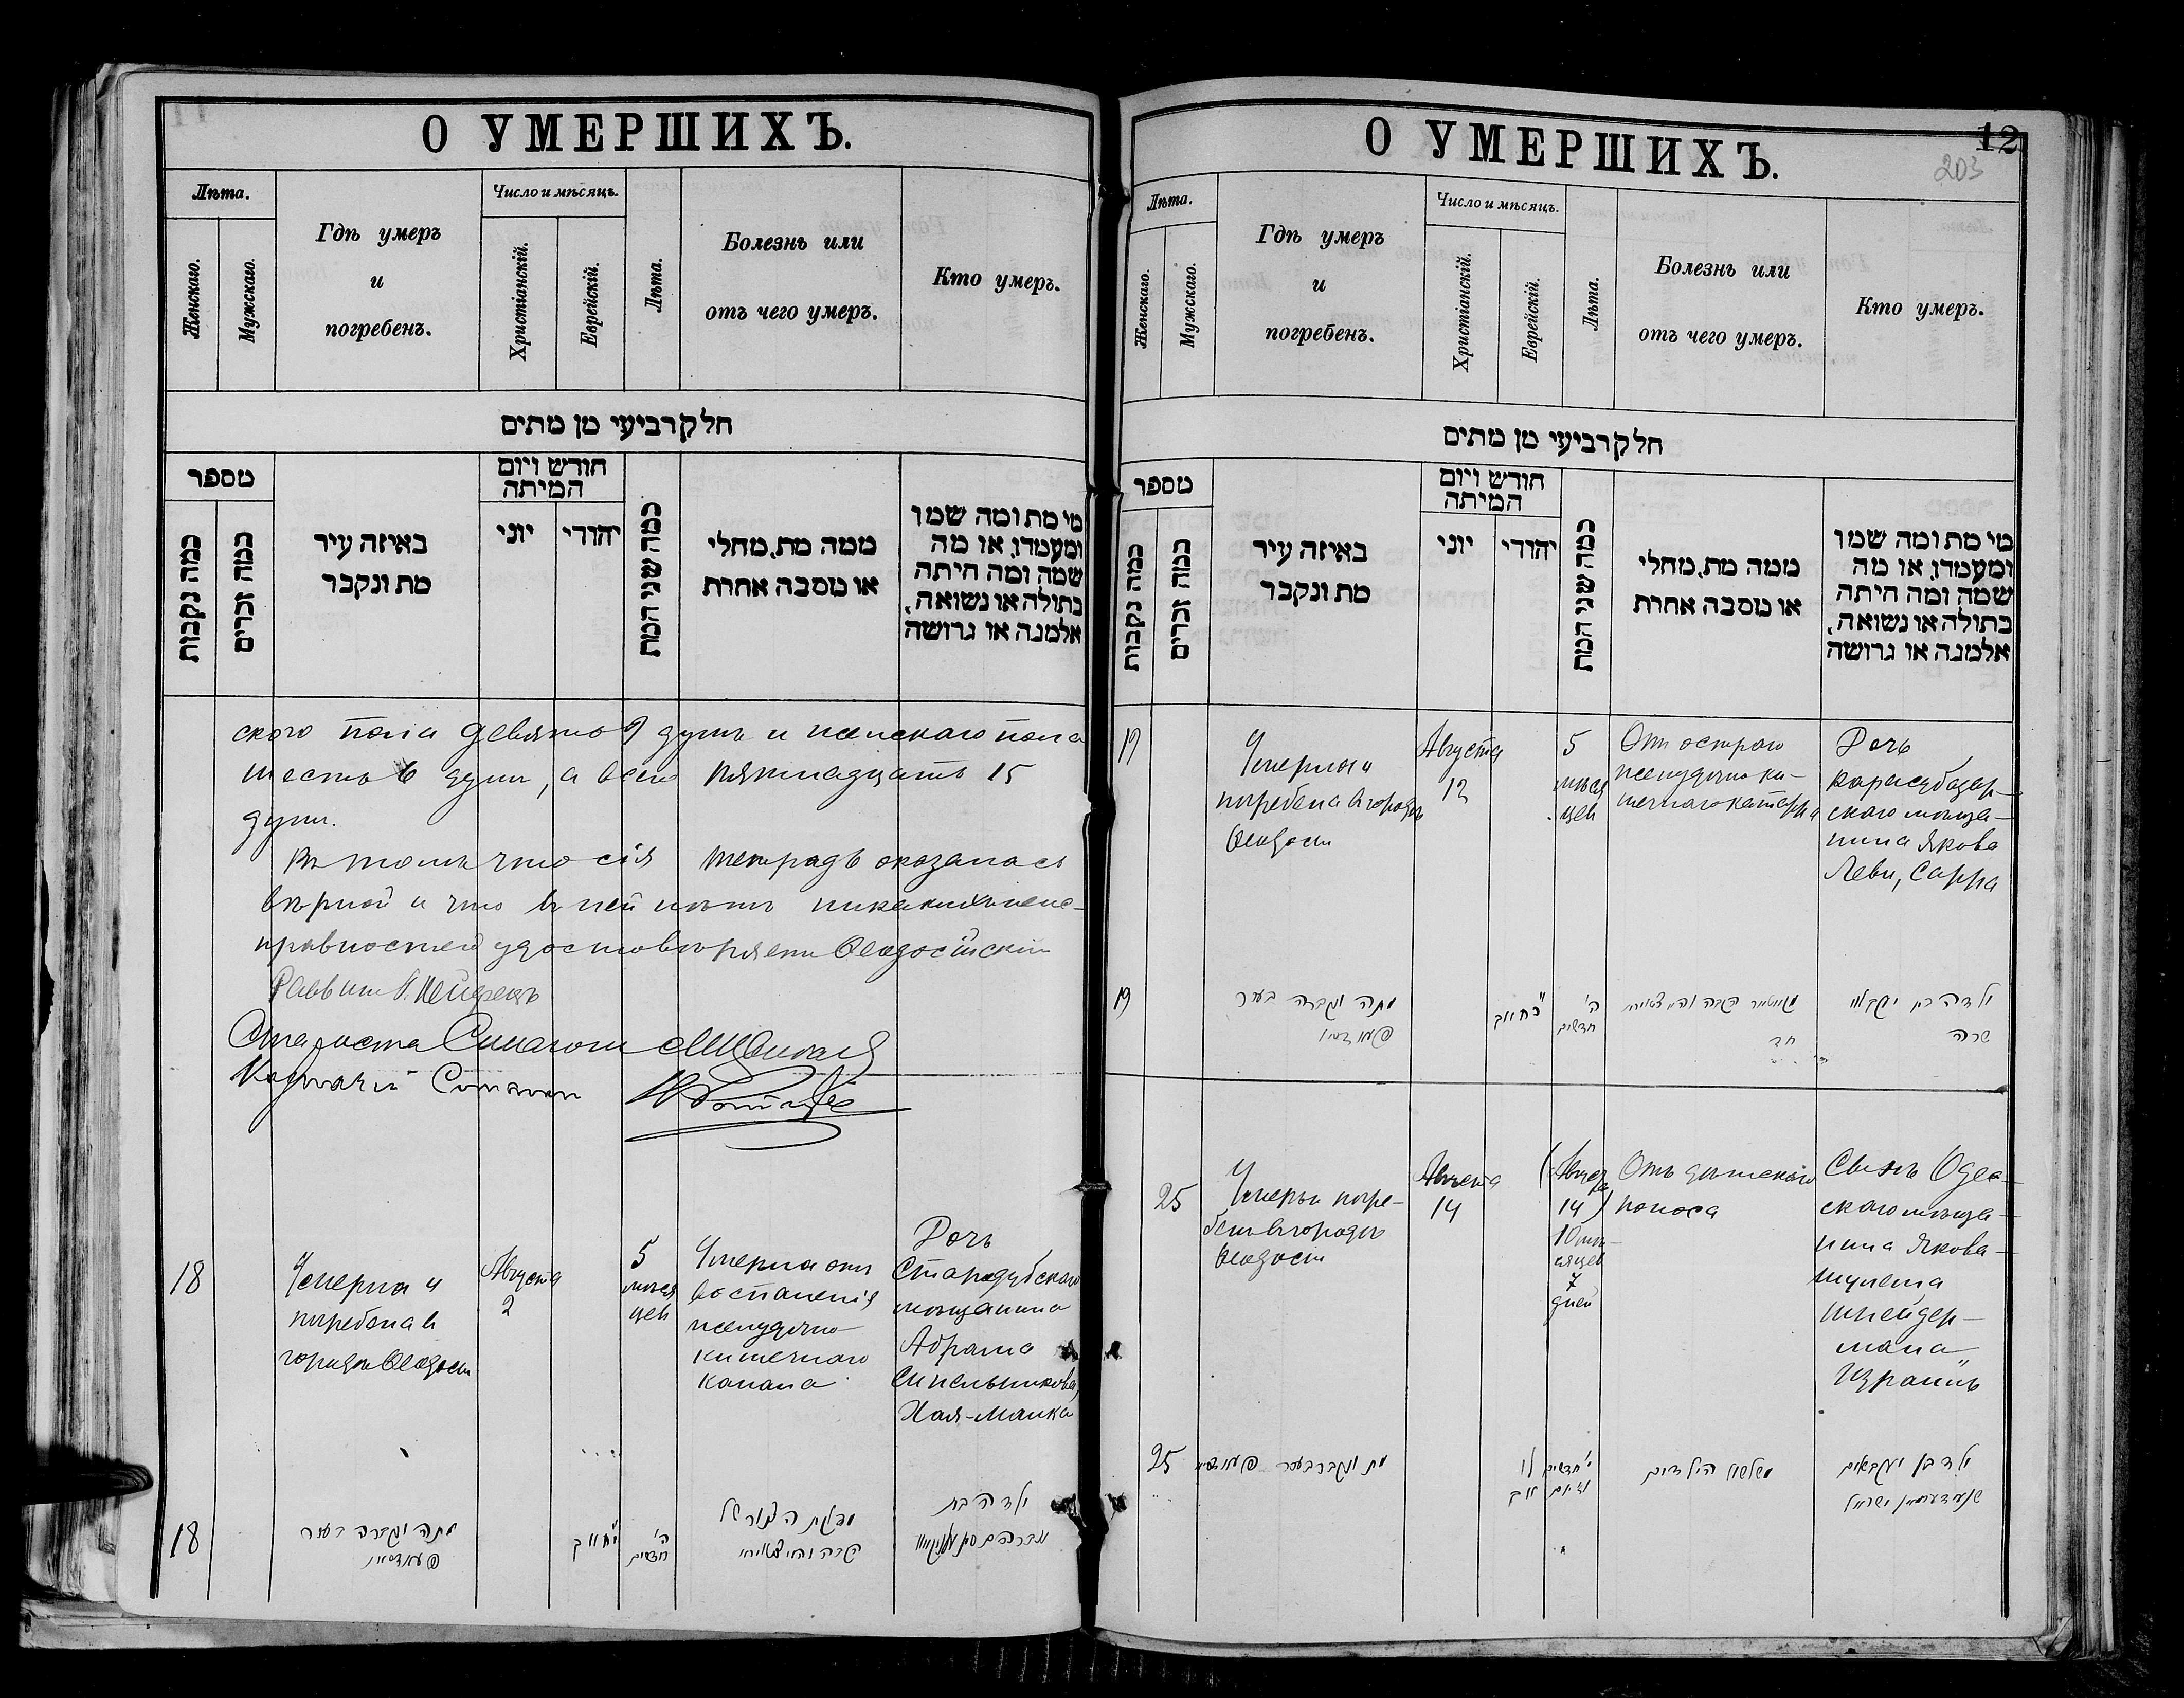 О УМЕРШИХЪ.
Лѣта.
Женскаго.
Мужскаго.
Гдѣ умеръ
и
погребенъ.
Число и мѣсяцъ.
Христіанскій.
Еврейскій.
Лѣта.
Болезнь или
отъ чего умеръ.
Кто умеръ.
חלק רביעי מן מתים
מספר
כמה נקבות
כמה זכרים
באיזה עיר
מת ונקבר
חודש ויום
המיתה
יוני
יהודי
כמה שני המת
ממה מת, מחלי
או מסבה אחרת
מי מת ומה שמו
ומעמדו, או מה
שמה ומה היתה
בתולה או נשואה,
אלמנה או גרושה
ского пола девять 9 душъ и женскаго пола
шесть 6 душъ, а всего пятнадцать 15
душъ.
Въ томъ что сія тетрадь оказалась
вѣрной и что въ ней нѣтъ никакихъ неис-
правностей удостовѣряетъ Ѳеодосійскій
Раввинъ
Староста Синагоги
Казначей Синагоги
18
Умерла и
погребена въ
городѣ Ѳеодосіи
Августа
2
5
мѣся
цевъ
Умерла отъ
воспаленія
желудочно-
кишечнаго
канала
Дочь
Стародубскаго
мѣщанина
Абрама
Синельникова,
Хая-Малка
18
מתה ונקברה בעיר
פעאדאסיי
י"ח אב
ה'
חדשים
מדלקת הצנור של
הקבה והמעים
ילדה בת
אברהם
О УМЕРШИХЪ.
12
203
Лѣта.
Женскаго.
Мужскаго.
Гдѣ умеръ
и
погребенъ.
Число и мѣсяцъ.
Христіанскій.
Еврейскій.
Лѣта.
Болезнь или
отъ чего умеръ.
Кто умеръ.
חלק רביעי מן מתים
מספר
כמה נקבות
כמה זכרים
באיזה עיר
מת ונקבר
חודש ויום
המיתה
יוני
יהודי
כמה שני המת
ממה מת, מחלי
או מסבה אחרת
מי מת ומה שמו
ומעמדו, או מה
שמה ומה היתה
בתולה או נשואה,
אלמנה או גרושה
19
Умерла и
погребена въ городѣ
Ѳеодосіи
Августа
12
5
мѣся
цевъ
Отъ остраго
желудочно-ки-
шечнаго катарра
Дочь
карасубазар-
скаго мѣща-
нина Якова
Леви, Сарра
19
מתה ונקברה בעיר
כ"ח אב
ה'
חדשים
חד
ילדה בת יעקב לוי
שרה
25
Умеръ и погре-
бенъ въ городѣ
Ѳеодосіи
Августа
14
(Август
14)
10 мѣ-
сяцевъ
7
дней
Отъ дѣтскаго
поноса
Сынъ Одес-
скаго мѣща-
нина Якова-
Шулема
Шнейдер-
мана
Израиль
25
מת ונקבר בעיר
ל'
אב
י' חדשים
ז' ימים
משלשול הילדים
ילד בן יעקב שלום
שניידערמאן ישראל